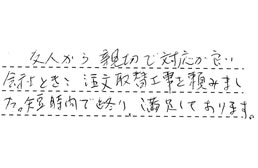 友人から親切で対応が良い
会社ときき注文取替工事を頼みまし
た。短時間で終り、満足しております。